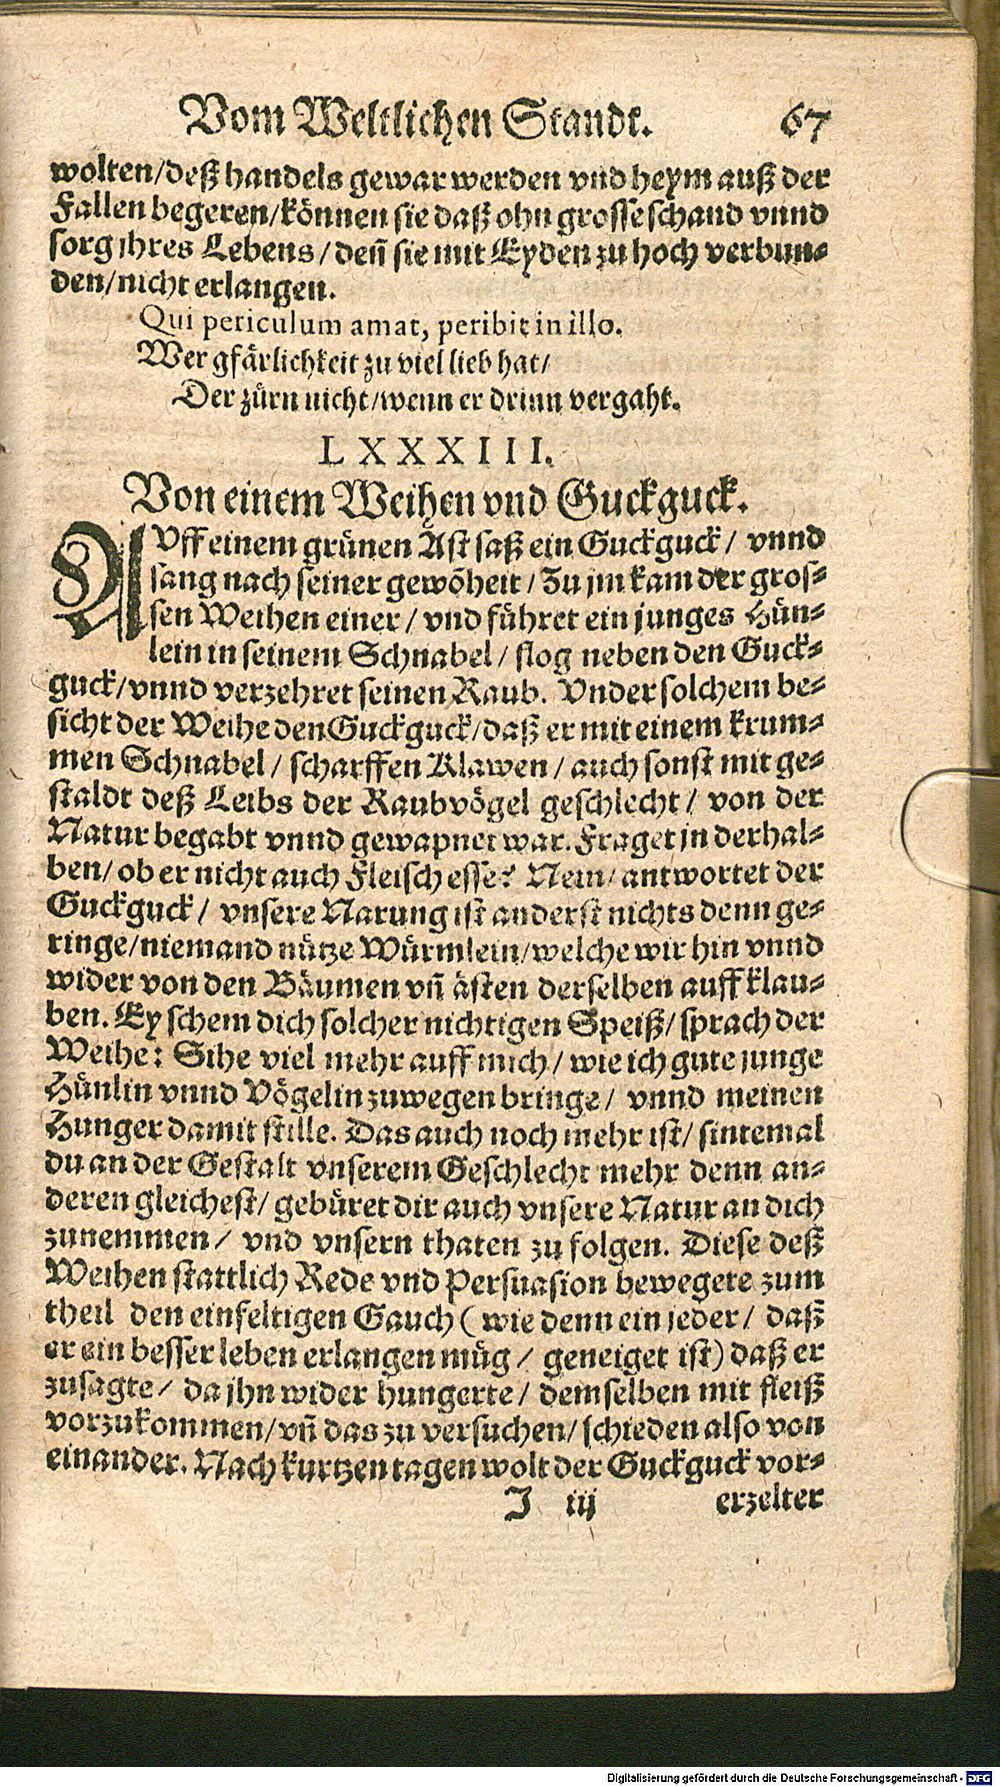 Vom Weltlichen Standt. 67
wolten/deß handels gewar werden vnd heym auß der
Fallen begeren/können sie daß ohn grosse schand vnnd
sorg jhres Lebens/deñ sie mit Eyden zu hoch verbun-
den/nicht erlangen.
Qui periculum amat, peribit in illo.
Wer gfärlichkeit zu viel lieb hat/
Der zürn nicht/wenn er drinn vergaht.
LXXXIII.
Von einem Weihen vnd Guckguck.
AVff einem grünen Ast saß ein Guckguck/ vnnd
sang nach seiner gewõheit/Zu jm kam der gros-
sen Weihen einer/ vnd führet ein junges Hün-
lein in seinem Schnabel/ flog neben den Guck-
guck/vnnd verzehret seinen Raub. Vnder solchem be-
sicht der Weihe den Guckguck/daß er mit einem krum-
men Schnabel/ scharffen Klawen/ auch sonst mit ge-
staldt deß Leibs der Raubvögel geschlecht/ von der
Natur begabt vnnd gewapnet war. Fraget jn derhal-
ben/ ob er nicht auch Fleisch esse? Nein/ antwortet der
Guckguck/ vnsere Narung ist anderst nichts denn ge-
ringe/niemand nütze Würmlein/welche wir hin vnnd
wider von den Bäumen vñ ästen derselben auff klau-
ben. Ey schem dich solcher nichtigen Speiß/sprach der
Weihe: Sihe viel mehr auff mich/ wie ich gute junge
Hünlin vnnd Vögelin zuwegen bringe/ vnnd meinen
Hunger damit stille. Das auch noch mehr ist/ sintemal
du an der Gestalt vnserem Geschlecht mehr denn an-
deren gleichest/ gebüret dir auch vnsere Natur an dich
zunemmen/ vnd vnsern thaten zu folgen. Diese deß
Weihen stattlich Rede vnd Persuasion bewegete zum
theil den einfeltigen Gauch (wie denn ein jeder/ daß
er ein besser leben erlangen müg/ geneiget ist) daß er
zusagte/ da jhn wider hungerte/ demselben mit fleiß
vorzukommen/vñ das zu versuchen/ schieden also von
einander. Nach kurtzen tagen wolt der Guckguck vor-
J iij erzelter
Digitalisierung gefördert durch die Deutsche Forschungsgemeinschaft - DFG